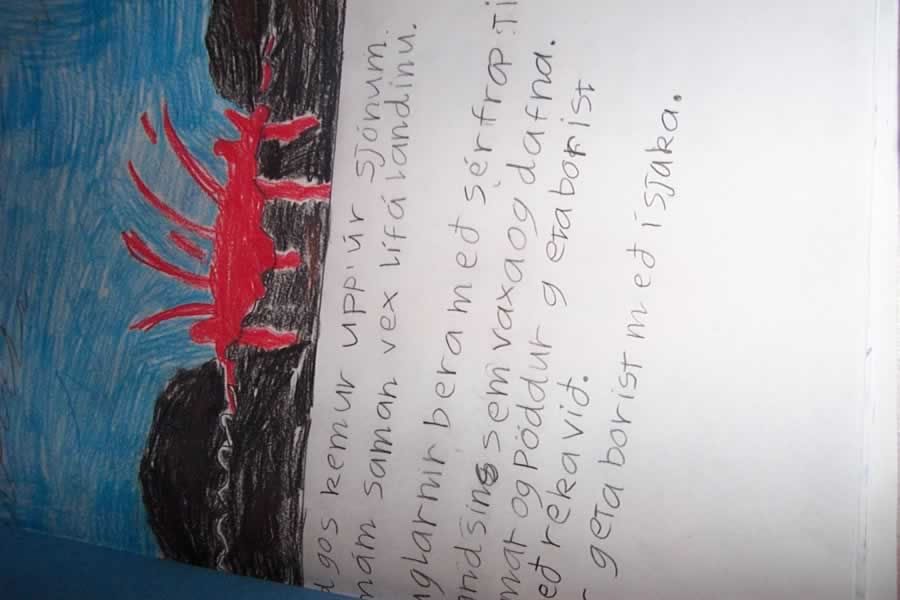 gos kemur uppi úr sjónum.
smám saman vex líf á landinu.
uglarnir bera með sér fræ Ti
andsins sem vaxa og dafna.
mar og pöddur geta borist
eð rekavið.
geta borist með ísjaka.